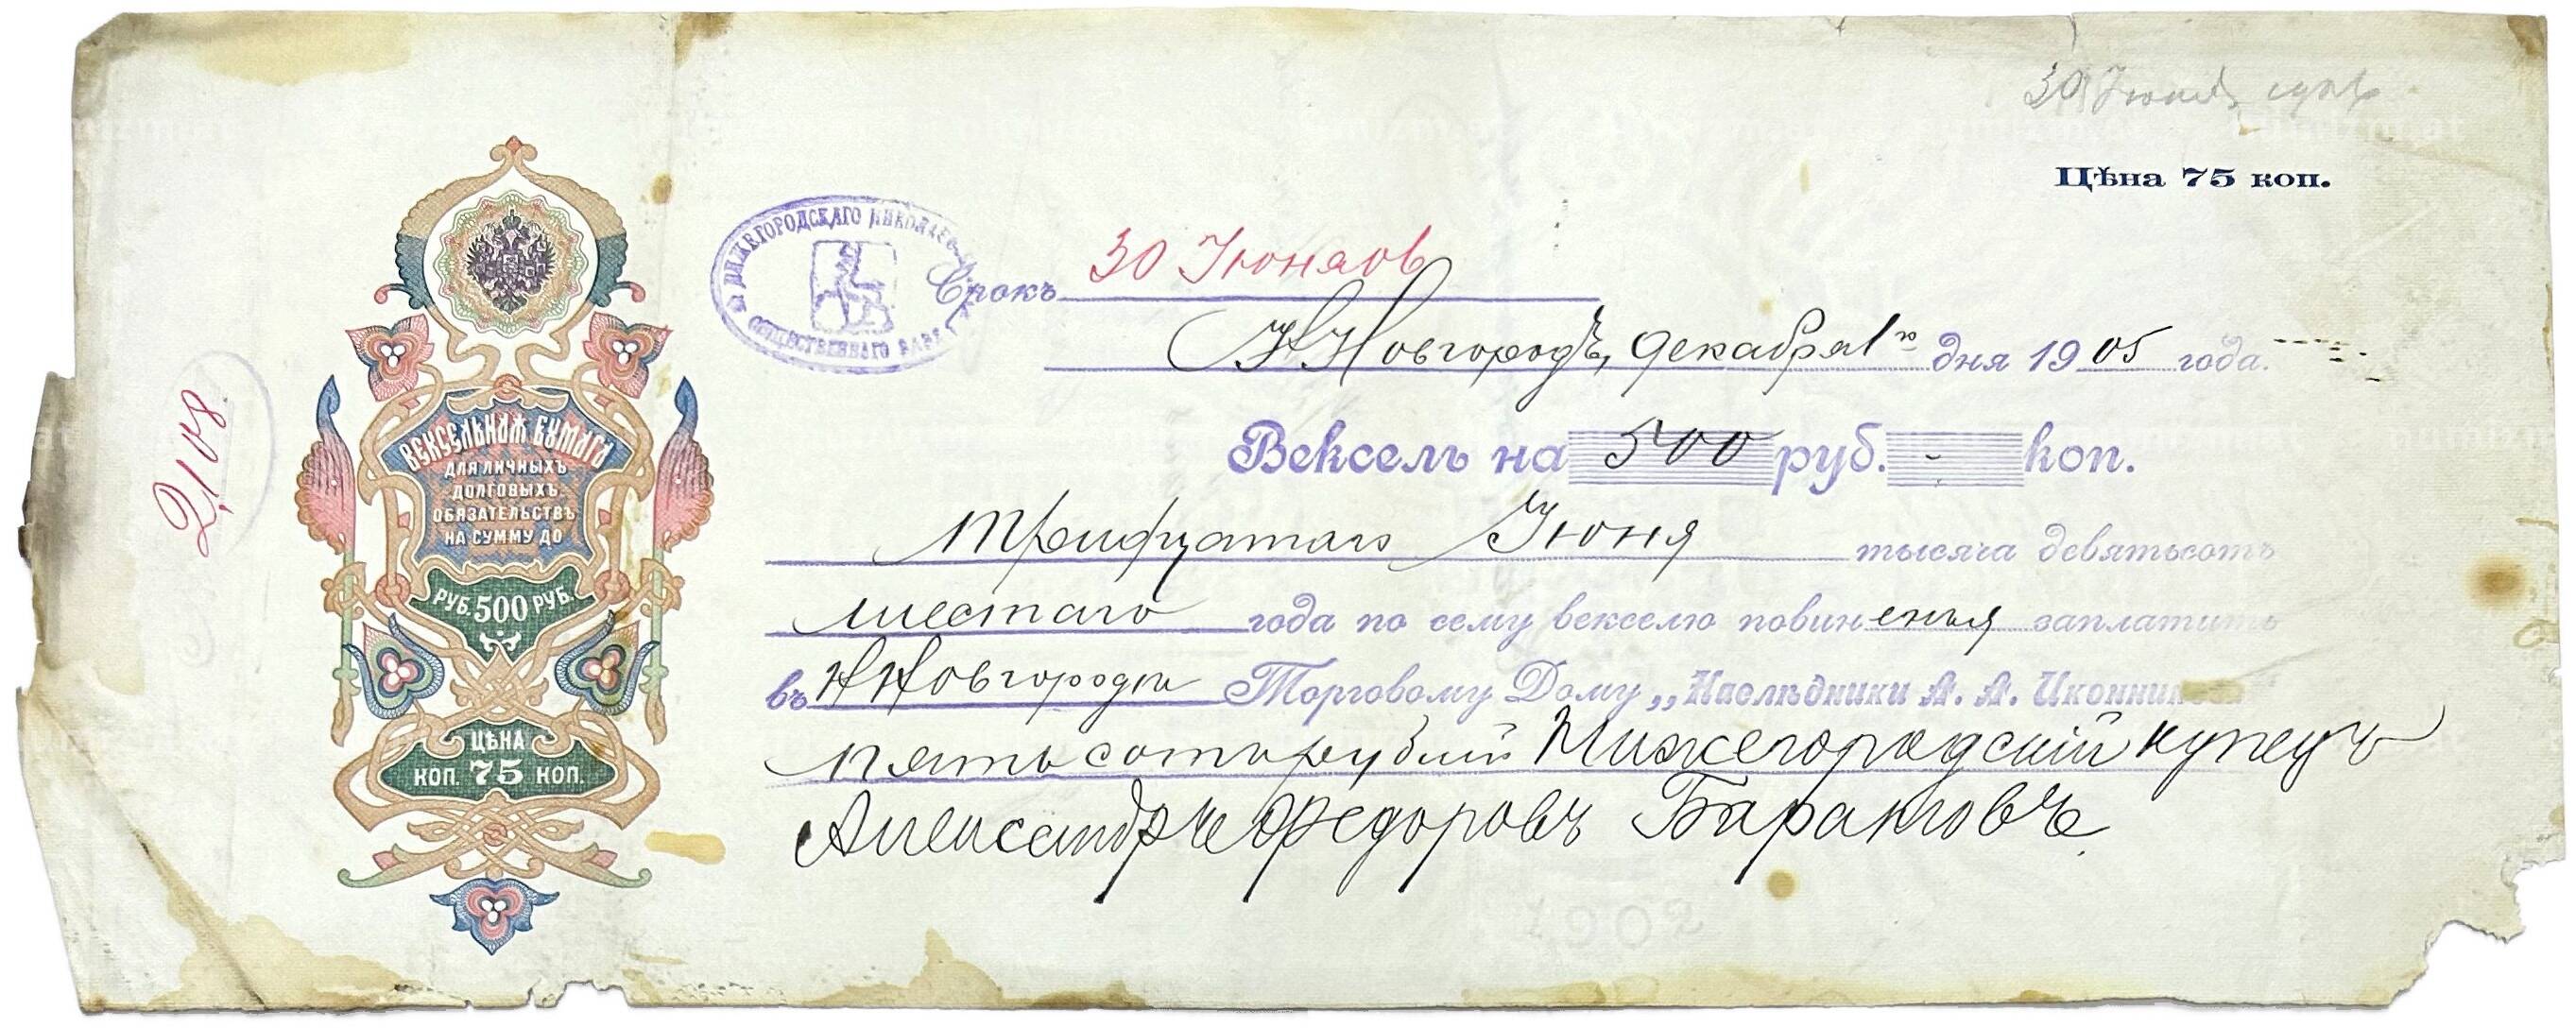 30 Іюня
Цѣна 75 коп.
НИЖЕГОРОДСКАГО НИКОЛАЕВ
ОБЩЕСТВЕННАГО БАНКА
Срокъ 30 Іюня 06
Н Новгородъ, декабря 1 го дня 1905 года.
2108
ВЕКСЕЛЬНАЯ БУМАГА
ДЛЯ ЛИЧНЫХЪ
ДОЛГОВЫХЪ
ОБЯЗАТЕЛЬСТВЪ
НА СУММУ ДО
РУБ. 500 РУБ.
ЦѢНА
КОП. 75 КОП.
Вексель на 500 руб. - коп.
Тридцатаго Іюня тысяча девятьсотъ
шестаго года по сему векселю повиненъ я заплатить
въ Н Новгороди Торговому Дому „Наслѣдники А. А. Иконникова
пятьсотъ рублей Нижегородский купецъ
Александръ Федоровъ
1902